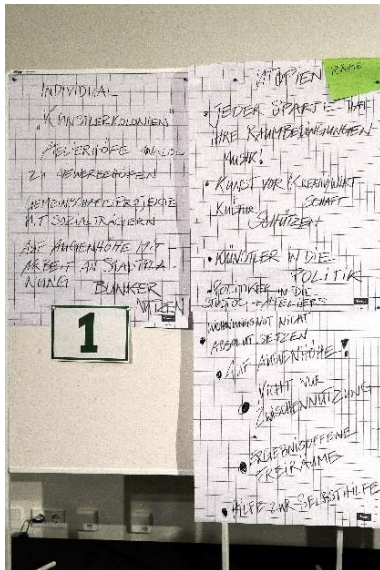 INDIVIDUAL
"KÜNSTLERKOLONIEN"
ATELIERHÖFE ANALOG
ZU GEWERBEHÖFEN
GEMEINSCHAFTSPROJEKTE
MIT SOZIALTRÄGERN
AUF AUGENHÖHE MIT
ARBEIT AN STADTPLA-
NUNG
BUNKER
1
UTOPIEN
• JEDER SPARTE IHRE
IHRE RAUMBEDINGUNGEN
MUSIK!
• KUNST VOR KREATIVWIRT
SCHAFT
KULTUR
SCHÜTZEN
• KÜNSTLER IN DIE
POLITIK
• POLITIKER IN DIE
ATELIERS
WOHNUNGSNOT NICHT
ABSOLUT SETZEN
• AUF AUGENHÖHE
• NICHT NUR
ZWISCHENNUTZUNG
• ERGEBNISOFFENE
FREIRÄUME
• HILFE ZUR SELBSTHILFE